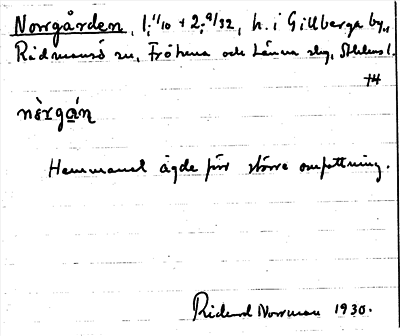 Norrgården, 1, 11/10 + 2, 9/32, h. i Gillberga by,
Rådmansö sn, Frötuna och Länna slg, Sthlms l.
nè̀rgán
Hemmanet ägde förr större omfattning.
Rickard Norrman 1930.